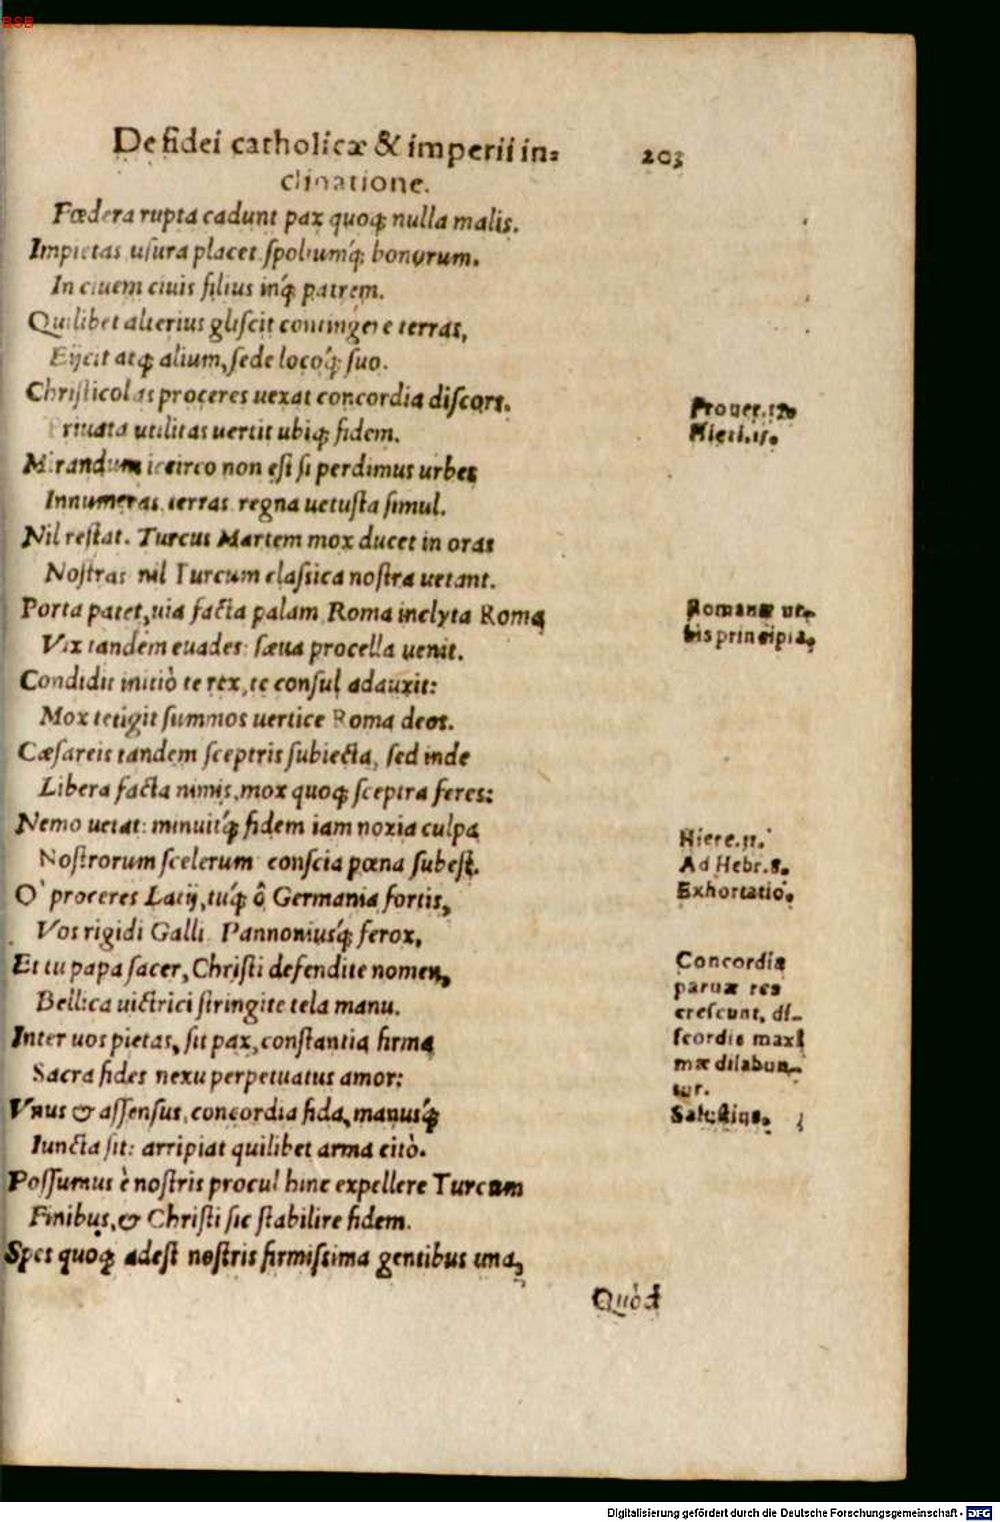 BSB
De fidei catholicæ & imperii in=
clinatione.
203
Fœdera rupta cadunt pax quoq; nulla malis.
Impietas usura placet spoliumq́; bonorum.
In ciuem ciuis filius inq́; patrem.
Quilibet alterius gliscit contingere terras,
Eijcit atq; alium, sede locoq́; suo.
Christicolas proceres uexat concordia discors.
Priuata utilitas uertit ubiq; fidem.
Mirandum iccirco non est si perdimus urbes
Innumeras terras regna uetusta simul.
Nil restat. Turcus Martem mox ducet in oras
Nostras nil Turcum classica nostra uetant.
Porta patet, uia facta palam Roma inclyta Roma
Vix tandem euades: sæua procella uenit.
Condidit initiò te rex, te consul adauxit:
Mox tetigit summos uertice Roma deos.
Cæsareis tandem sceptris subiecta, sed inde
Libera facta nimis, mox quoq; sceptra feres:
Nemo uetat: minuitq́; fidem iam noxia culpa
Nostrorum scelerum conscia pœna subest.
O' proceres Latij, tuq́; ô Germania fortis,
Vos rigidi Galli Pannoniusq́; ferox,
Et tu papa sacer, Christi defendite nomen,
Bellica uictrici stringite tela manu.
Inter uos pietas, sit pax, constantia firma
Sacra fides nexu perpetuatus amor:
Vnus & assensus, concordia fida, manusq́;
Iuncta sit: arripiat quilibet arma citò.
Possumus è nostris procul hinc expellere Turcam
Finibus, & Christi sic stabilire fidem.
Spes quoq; adest nostris firmissima gentibus una,
Quòd
Prouer.
Hiere.
Romanæ ur-
bis principia.
Hiere.
Ad Hebr. 8.
Exhortatio.
Concordia
paruæ res
crescunt, di-
scordia maxi
mæ dilabun-
tur.
Salustius.
Digitalisierung gefördert durch die Deutsche Forschungsgemeinschaft - DFG